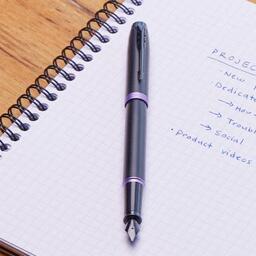 PROJEC
New
Dedicate
→ How
→ Troubl
→ Social
• Product videos